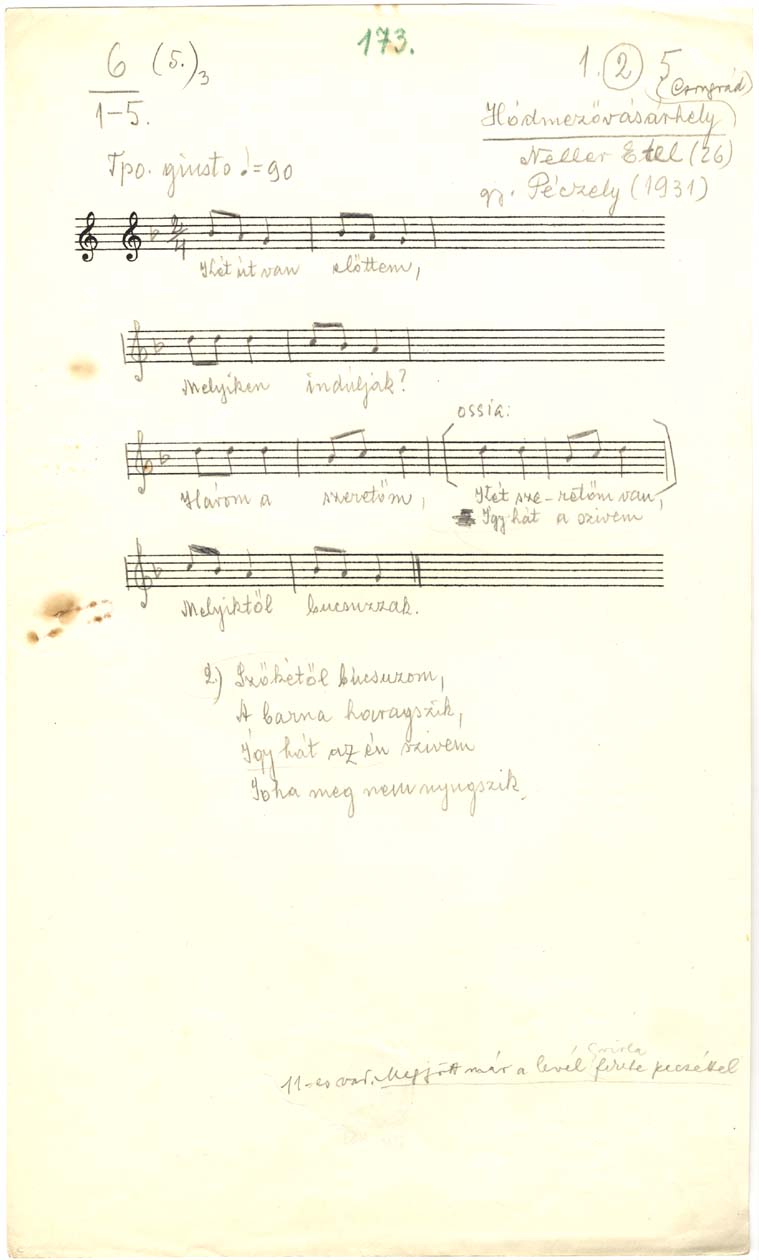 173.
6 (5.)3
1-5.
1. 2 5
(Csongrád)
Hódmezővásárhely
Neller Etel (26)
gy. Péczely (1931)
Tpo. giusto ♩=90
2/4
Két út van előttem,
Melyiken induljak?
ossia:
Három a szeretőm,
Két sze-retőm van,
Így hát a szivem
Melyiktől bucsuzzak.
2.) Szőkétől búcsuzom,
A barna haragszik,
Így hát az én szivem
Soha meg nem nyugszik.
11-es var. Megjött már a levél fekete pecséttel